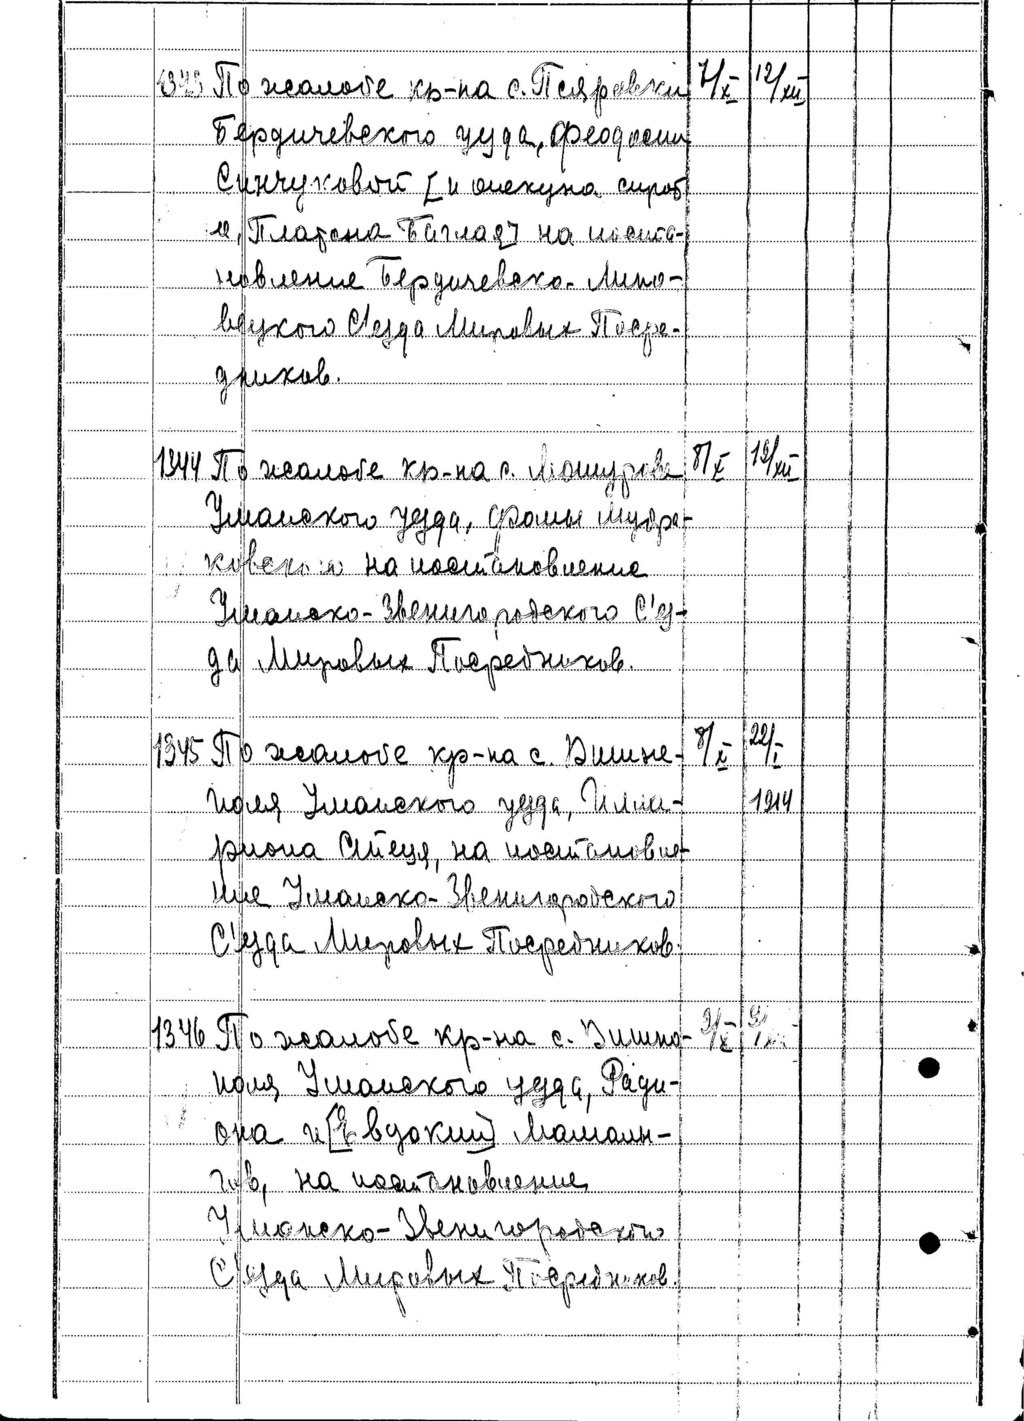 1343 По жалобе кр-на с. Псяровки 7/X 12/XII
Бердичевского уезда, Феодосии
Синчуковой [и опекуна сирот
Платона Баглая] на поста-
новление Бердичевско-Липо-
вецкого С'езда Мировых Посре-
дников.
1344 По жалобе кр-на с. Машурова 8/X 19/XII
Уманского уезда, Фомы
на постановление
Уманско-Звенигородского С'ез-
да Мировых Посредников.
1345 По жалобе кр-на с. Вишне- 8/X 22/I
поля Уманского уезда, Илла- 1914
риона Стеця, на постановле-
ние Уманско-Звенигородского
С'езда Мировых Посредников.
1346 По жалобе кр-на с. Вишно-
поля Уманского уезда, Ради-
она и [Евдокии]
на постановление
Уманско-Звенигородского
С'езда Мировых Посредников.